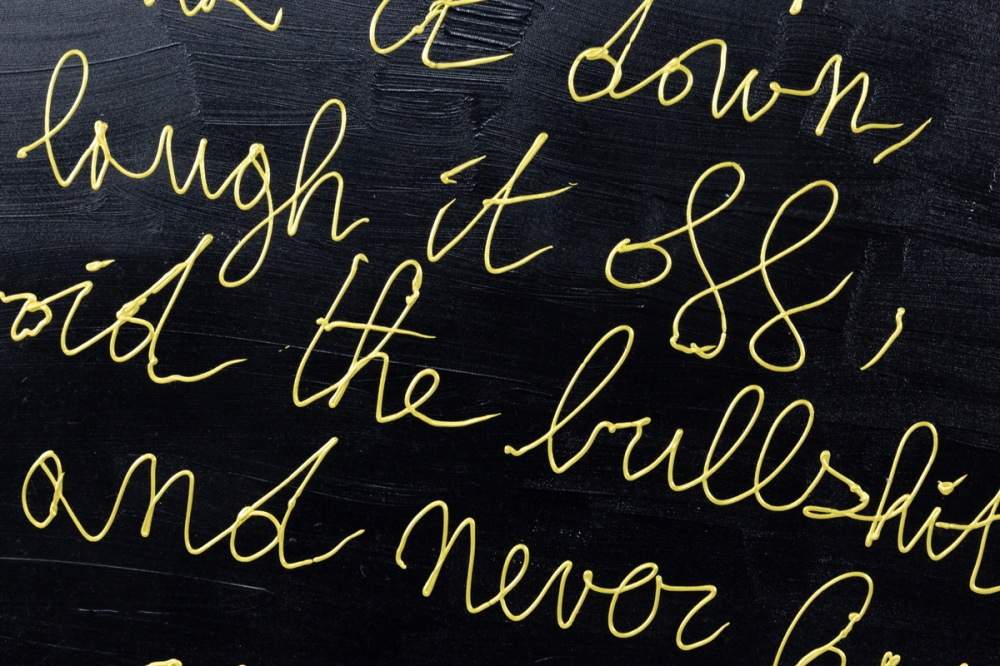 it down,
laugh it off,
the bullshit
and never